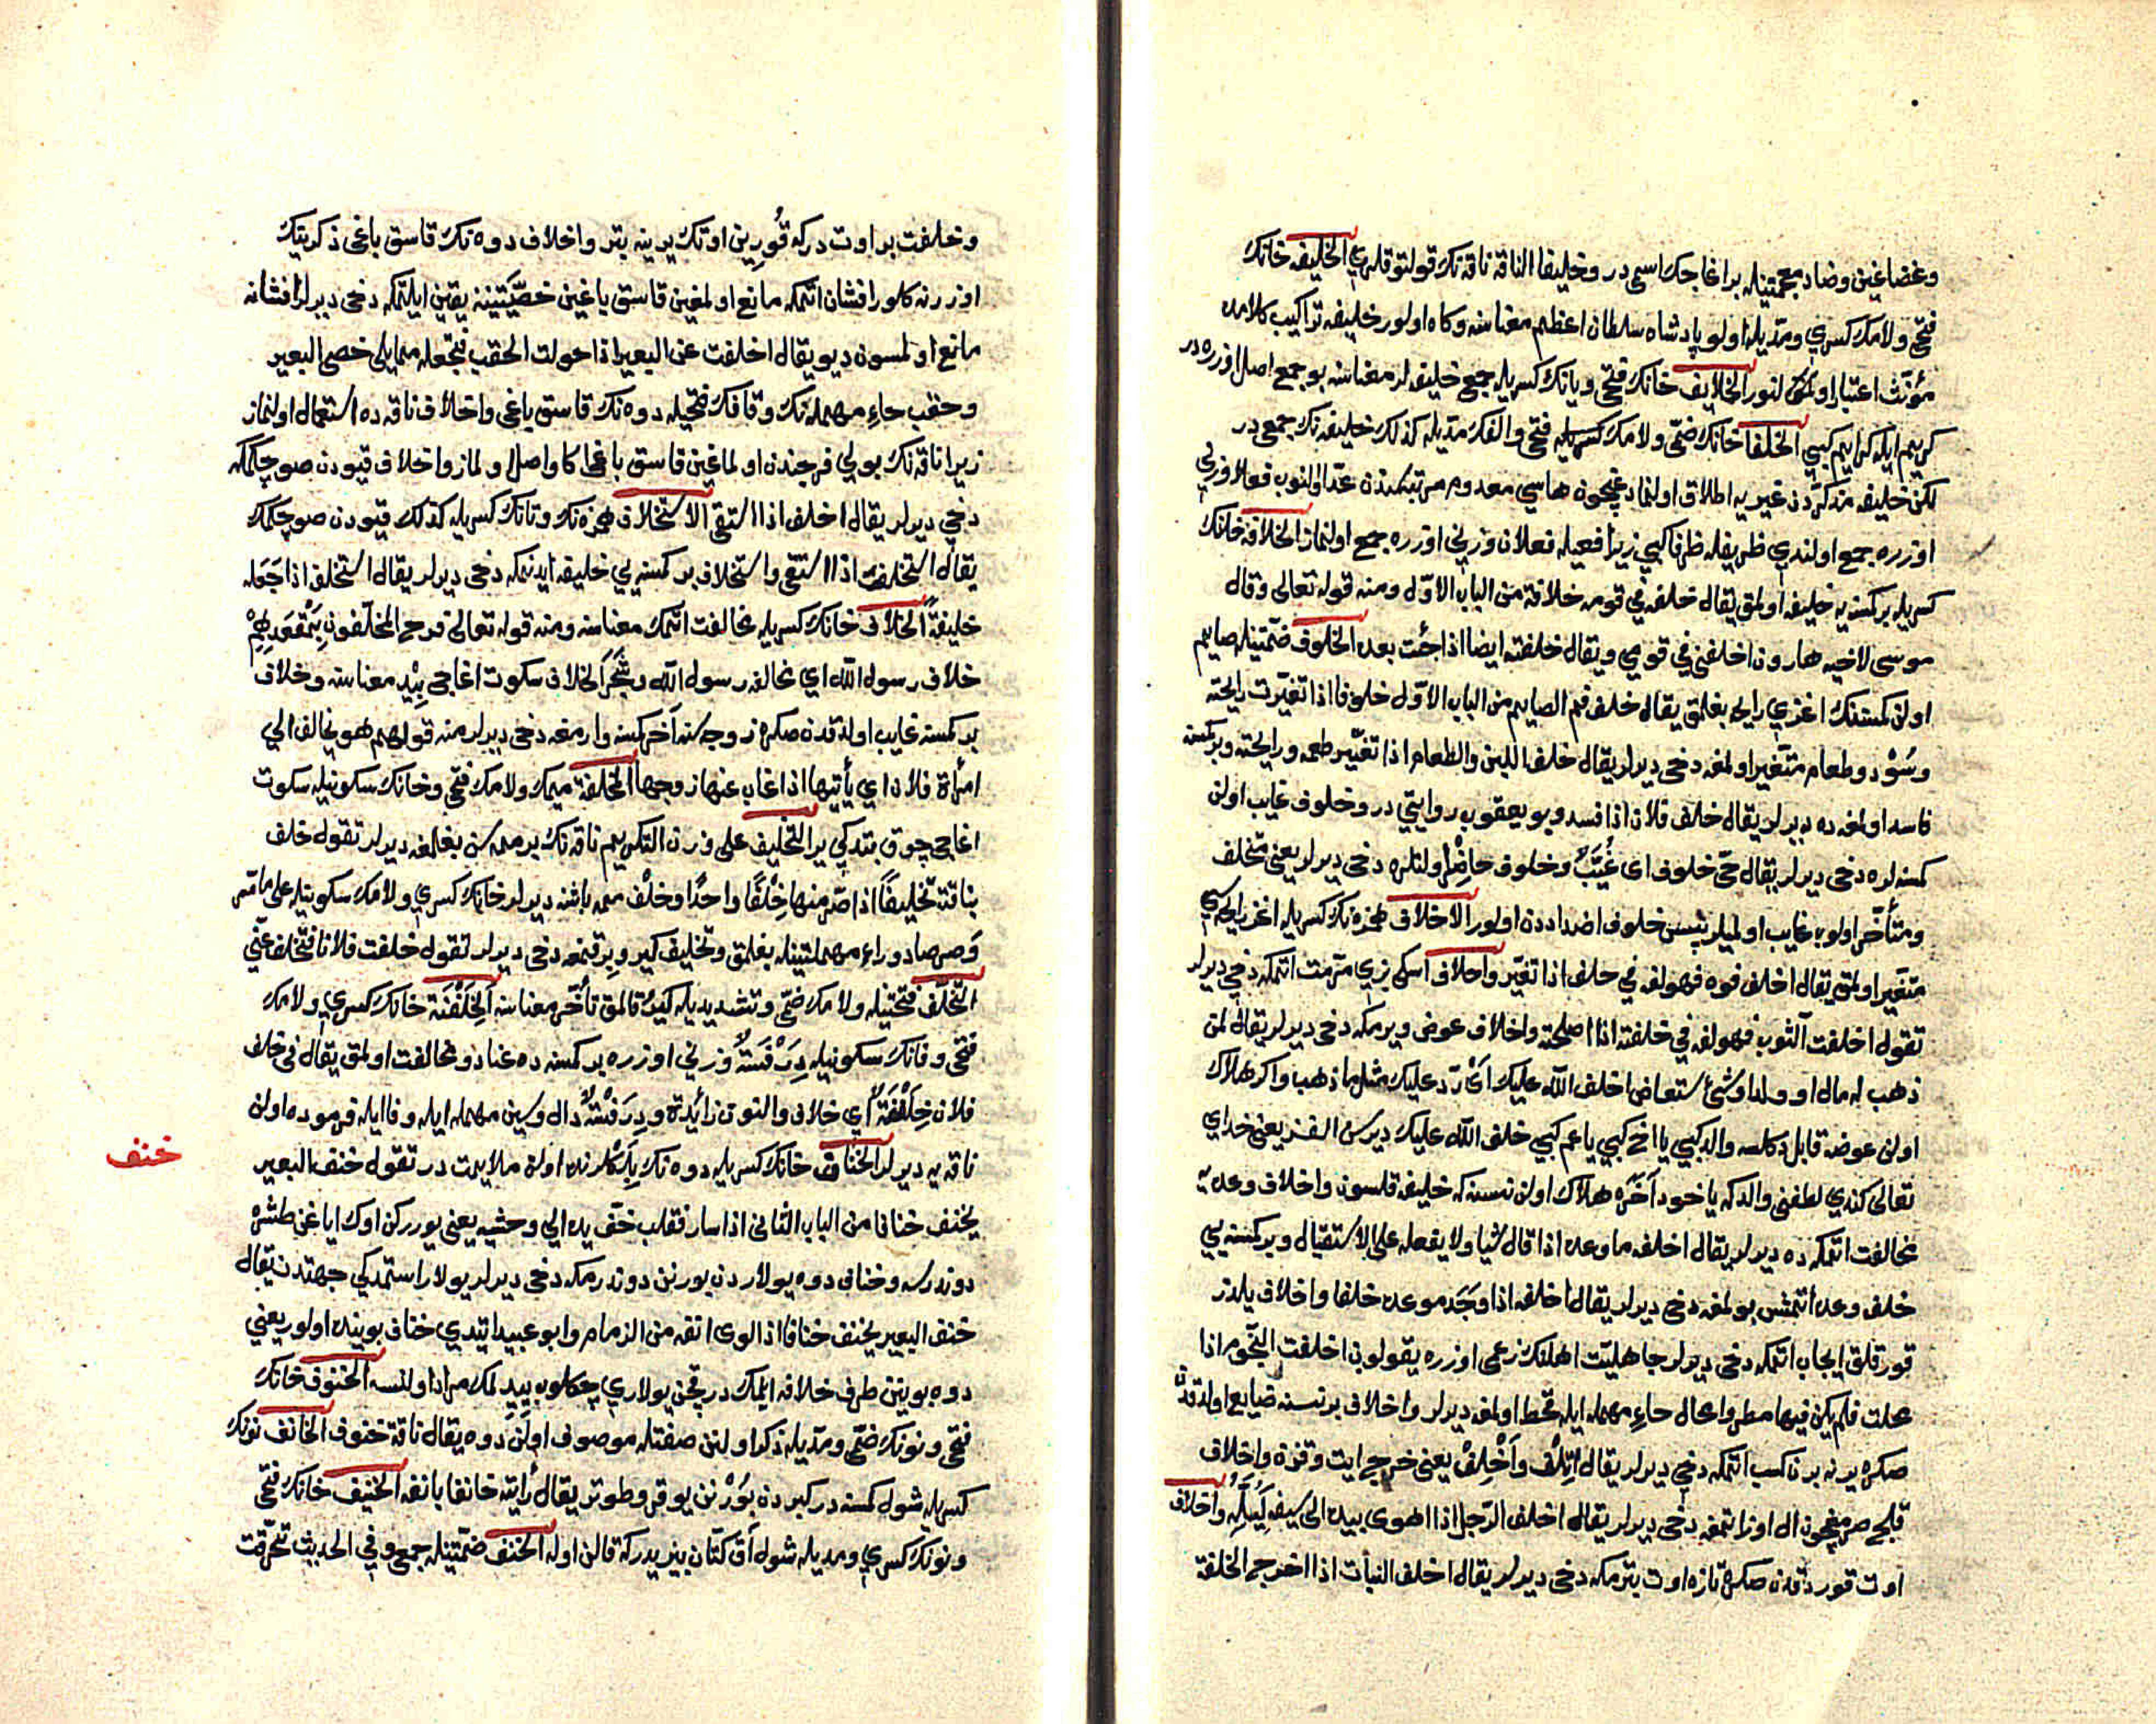 وغضا غين وضاد معجمتينله بر اغاجك اسمى در وخليفا الناقة ناقه نك قولتوقلرى الخليفه خانك
فتحى ولامك كسرى ومديله اولو پادشاه سلطان اعظم معناسنه وكاه اولور خليفه تراكيب كلامده
مؤنث اعتبار اولنور الخلايف خانك فتحى ويانك كسريله جمع خليفه لر معناسنه بو جمع اصل اوزره در
كريم ايله كرايم كبى الخلفا خانك ضمى ولامك فتحى والفك مديله كذلك خليفه نك جمعى در
لكن خليفه مذكردن غيريه اطلاق اولنمادغيچون هاسى معدوم مرتبه سندن عد اولنوب فعلا وزنى
اوزره جمع اولندى ظريفله ظرفا كبى زيرا فعيله فعلا وزنى اوزره جمع اولنماز الخلافة خانك
كسريله بر كسنه يه خليفه اولمق يقال خلفه فى قومه خلافة من الباب الاول ومنه قوله تعالى وقال
موسى لاخيه هارون اخلفنى فى قومى ويقال خلفته ايضا اذا جئت بعده الخلوف ضمتينله صايم
اولن كمسنه نك اغزى رايحه بغلمق يقال خلف فم الصايم من الباب الاول خلوفا اذا تغيرت رايحته
وسود وطعام متغير اولمغه دخى ديرلر يقال خلف اللبن والطعام اذا تغير طعمه ورايحته وبر كمسنه
فاسد اولمغه ده ديرلر يقال خلف فلان اذا فسد وبو يعقوب روايتى در وخلوف غايب اولن
كمسنه لره دخى ديرلر يقال حى خلوف اى غيب وخلوف حاضر اولنلره دخى ديرلر يعنى متخلف
ومتأخر اولوب غايب اولميلر پس خلوف اضداددن اولور الاخلاف همزه نك كسريله اغز رايحه سى
متغير اولمق يقال اخلف فوه فهو لغة فى خلف اذا تغير واخلاف اسكى بزى مرمت اتمكه دخى ديرلر
تقول اخلفت الثوب فهو لغة فى خلفته اذا اصلحته واخلاف عوض ويرمكه دخى ديرلر يقال لمن
ذهب له مال او ولد او شئ يستعاض اخلف الله عليك اى رد عليك مثل ما ذهب واكر هلاك
اولن عوضه قابل دكلسه والد كبى يا اخ كبى يا عم كبى خلف الله عليك ديرسن الفسز يعنى خداى
تعالى كندى لطفنى والدكه يا خود آخره هلاك اولن نسنه كه خليفه قلسون واخلاف وعده يه
مخالفت اتمكه ده ديرلر يقال اخلفه ما وعده اذا قال شيا ولا يفعله على الاستقبال وبر كمسنه يى
خلف وعده اتمش بولمغه دخى ديرلر يقال اخلفه اذا وجد موعده خلفا واخلاف يلدز
قورقلق ايجاب اتمكه دخى ديرلر جاهليت اهلنك زعمى اوزره يقولون اخلفت النجوم اذا
محلت فلم يكن فيها مطر وامحال حاء مهمله ايله قحط اولمغه ديرلر واخلاف بر نسنه ضايع اولدقدن
صكره يرنه برن كسب اتمكه دخى ديرلر يقال اتلف واخلف يعنى خرج ايت وقزن واخلاف
قلج صيرمغيچون ال اوزاتمغه دخى ديرلر يقال اخلف الرجل اذا اهوى بيده الى سيفه ليسله واخلاف
اوت قوردقدن صكره تازه اوت بترمكه دخى ديرلر يقال اخلف النبات اذا اخرج الخلفة
وخلفت بر اوت دركه قورين اوتك يرينه بتر واخلاف دوه نك قاسق باغى ذكرينك
اوزرنه كلور افشان اتمكه مانع اولمغين قاسق باغين خصيتينه يقين ايلتمكه دخى ديرلر افشانه
مانع اولمسون ديو يقال اخلفت عن البعير اذا حولت الحقب فتجعله مما يلى خصى البعير
وحقب حاء مهمله نك وقافك فتحيله دوه نك قاسق باغى واخلاف ناقه ده استعمال اولنماز
زيرا ناقه نك بولى فرجندن اولماغين قاسق باغى اكا واصل اولماز واخلاف قيودن صو چكمكه
دخى ديرلر يقال اخلف اذا استقى الاستخلاف همزه نك وتانك كسريله كذلك قيودن صو چكمك
يقال استخلفت اذا استقى واستخلاف بر كمسنه يى خليفه ايدنمكه دخى ديرلر يقال استخلف اذا جعله
خليفة الخلاف خانك كسريله مخالفت اتمك معناسنه ومنه قوله تعالى فرح المخلفون بمقعدهم
خلاف رسول الله اى مخالفة رسول الله وشجر الخلاف سكوت اغاجى بيد معناسنه وخلاف
بر كمسنه غايب اولدقدن صكره زوجه سنه آخر كمسنه وارمغه دخى ديرلر منه قولهم هو يخالف الى
امرأة فلان اى يأتيها اذا غاب عنها زوجها المخلفة ميمك ولامك فتحى وخانك سكونيله سكوت
اغاجى چوق بتدكى ير التخليف على وزن التكريم ناقه نك بر ممه سن بغلمغه ديرلر تقول خلف
بناقته تخليفا اذا صر منها خلفا واحدا وخلف ممه باشنه ديرلر خانك كسرى ولامك سكونيله على ما مر
وصر صاد وراء مهملتينله بغلمق وتخليف كيرو برقمغه دخى ديرلر تقول خلفت فلانا فتخلف عنى
التخلف فتحتينله ولامك ضمى وتشديديله كيرو قالمق تأخر معناسنه الخلفنة خانك كسرى ولامك
فتحى وفانك سكونيله درفسة وزنى اوزره بر كمسنه ده عناد ومخالفت اولمق يقال فى خلق
فلان خلفنة اى خلاف والنون زائدة ودرفسة دال وسين مهمله ايله وفا ايله فرموده اولن
ناقه يه ديرلر الخناف خانك كسريله دوه نك بلكلرنده اولن ملايمت در تقول خنف البعير
خنف
يخنف خنافا من الباب الثانى اذا سار فقلب خف يده الى وحشيه يعنى يورركن اوك اياغن طشره
دوندرسه وخناف دوه يولاردن بورنن دوندرمكه دخى ديرلر يولار استمدكى جهتدن يقال
خنف البعير يخنف خنافا اذا لوى انفه من الزمام وابو عبيد ايتدى خناف بوينده اولور يعنى
دوه بوينن طرف خلافه ايلمك در قچن يولارى چكلوب ييدلمك مراد اولنسه الخنوف خانك
فتحى ونونك ضمى ومديله ذكر اولنن صفتله موصوف اولن دوه يقال ناقة خنوف الخانف نونك
كسريله شول كمسنه در كبردن بورنن يوقرو طوتر يقال رأيته خانفا بانفه الخنيف خانك فتحى
ونونك كسرى ومديله شول آق كتان بزيدركه قالن اوله الخنف ضمتينله جمع وفى الحديث تخرقت